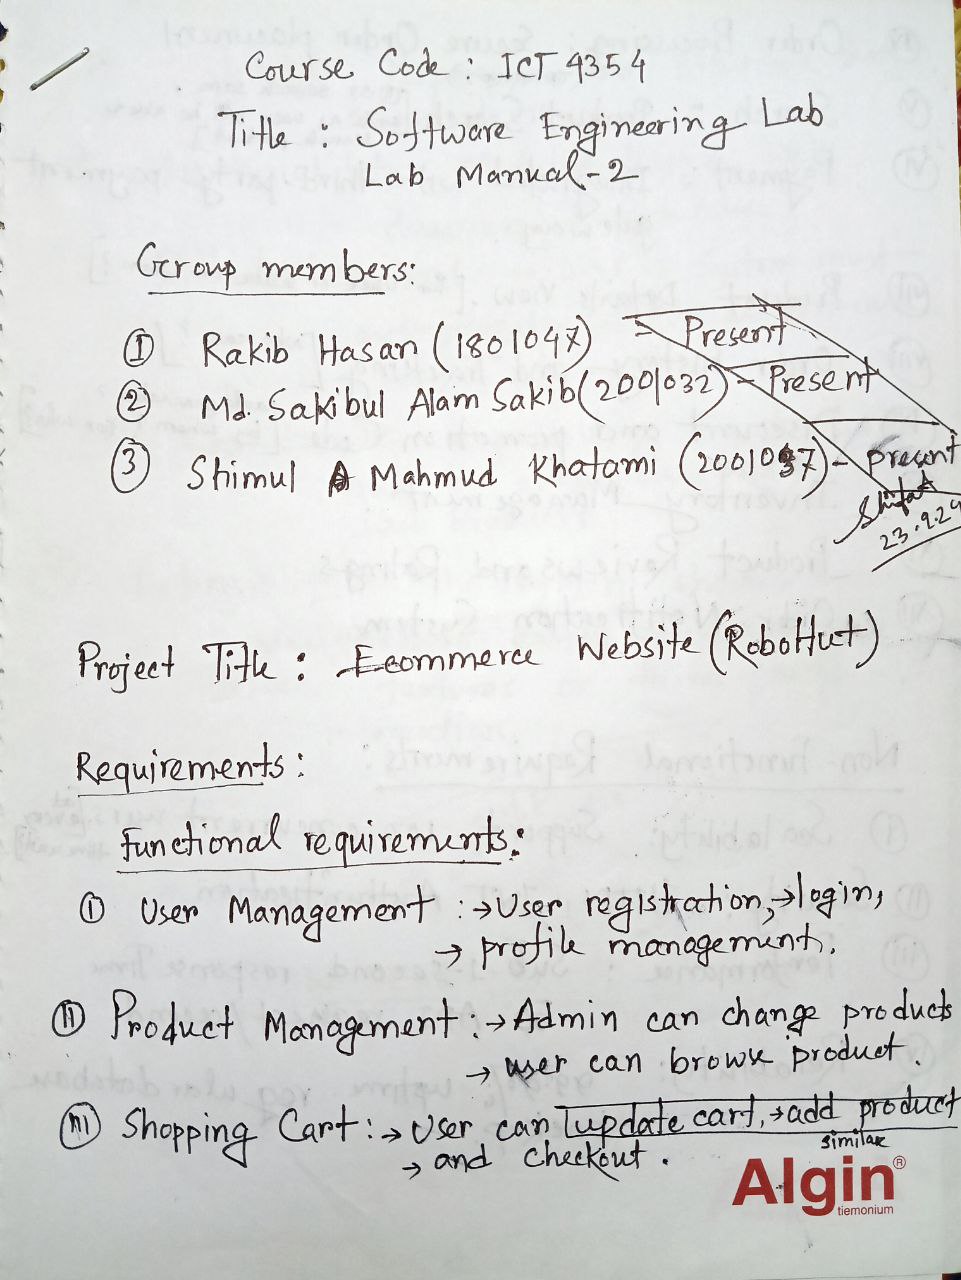 Course Code : ICT 4354
Title : Software Engineering Lab
Lab Manual-2
Group members:
① Rakib Hasan (1801047) - Present
② Md. Sakibul Alam Sakib (2001032) - Present
③ Shimul Mahmud Khatami (2001037) - present
23.9.24
Project Title : Ecommerce Website (RoboHut)
Requirements :
Functional requirements :
① User Management : → User registration, → login,
→ profile management.
ⓘⓘ Product Management : → Admin can change products
→ user can browse product.
ⓘⓘⓘ Shopping Cart : → User can update cart, → add product
similar
→ and checkout.
Algin®
tiemonium